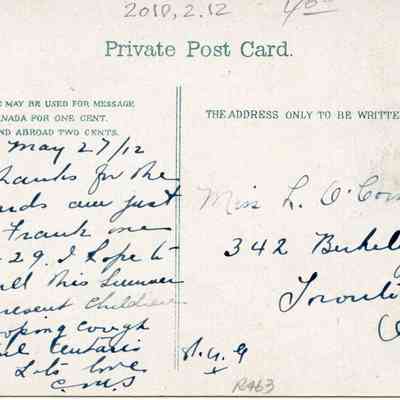 2010.2.12
Private Post Card.
E MAY BE USED FOR MESSAGE
ANADA FOR ONE CENT.
ND ABROAD TWO CENTS.
THE ADDRESS ONLY TO BE WRITTE
May 27/12
hanks for the
ards are just
Frank one
29. I hope to
this Summer
present children
ooping cough
love
C.M.S
Miss L. O'Con
342 Berkele
Toronto
R463